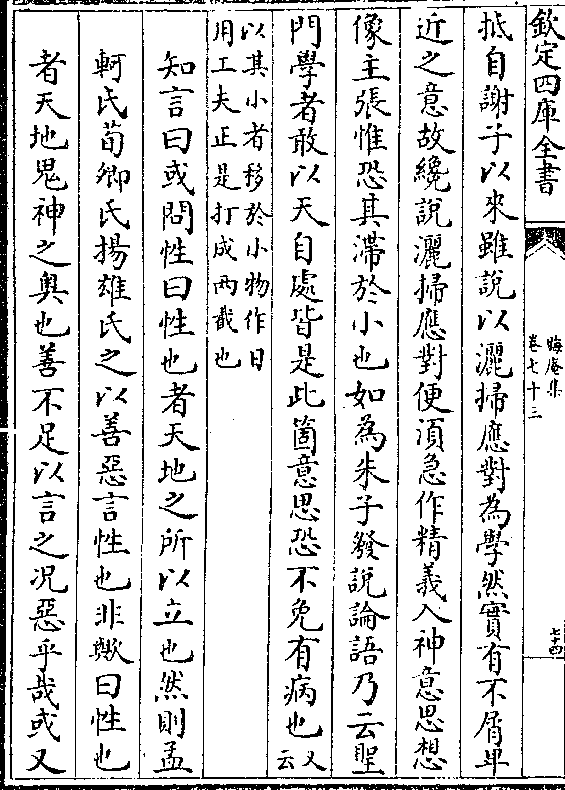 欽定四庫全書
晦庵集
卷七十三
七十四
抵自謝子以來雖說以灑掃應對為學然實有不屑卑
近之意故纔說灑掃應對便須急作精義入神意思想
像主張惟恐其滯於小也如為朱子發說論語乃云聖
門學者敢以天自處皆是此箇意思恐不免有病也又云
以其小者移於小物作日
用工夫正是打成兩截也
知言曰或問性曰性也者天地之所以立也然則孟
軻氏荀卿氏揚雄氏之以善惡言性也非歟曰性也
者天地鬼神之奥也善不足以言之况惡乎哉或又